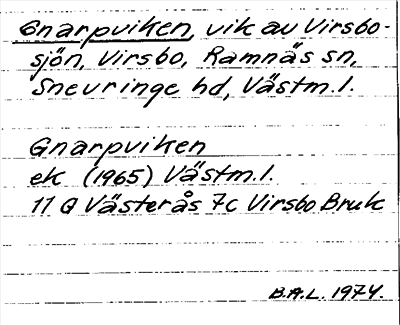 Gnarpviken, vik av Virsbo-
sjön, Virsbo, Ramnäs sn,
Snevringe hd, Västm.l.
Gnarpviken
ek (1965) Västm.l.
11 G Västerås 7c Virsbo Bruk
B.A.L. 1974.